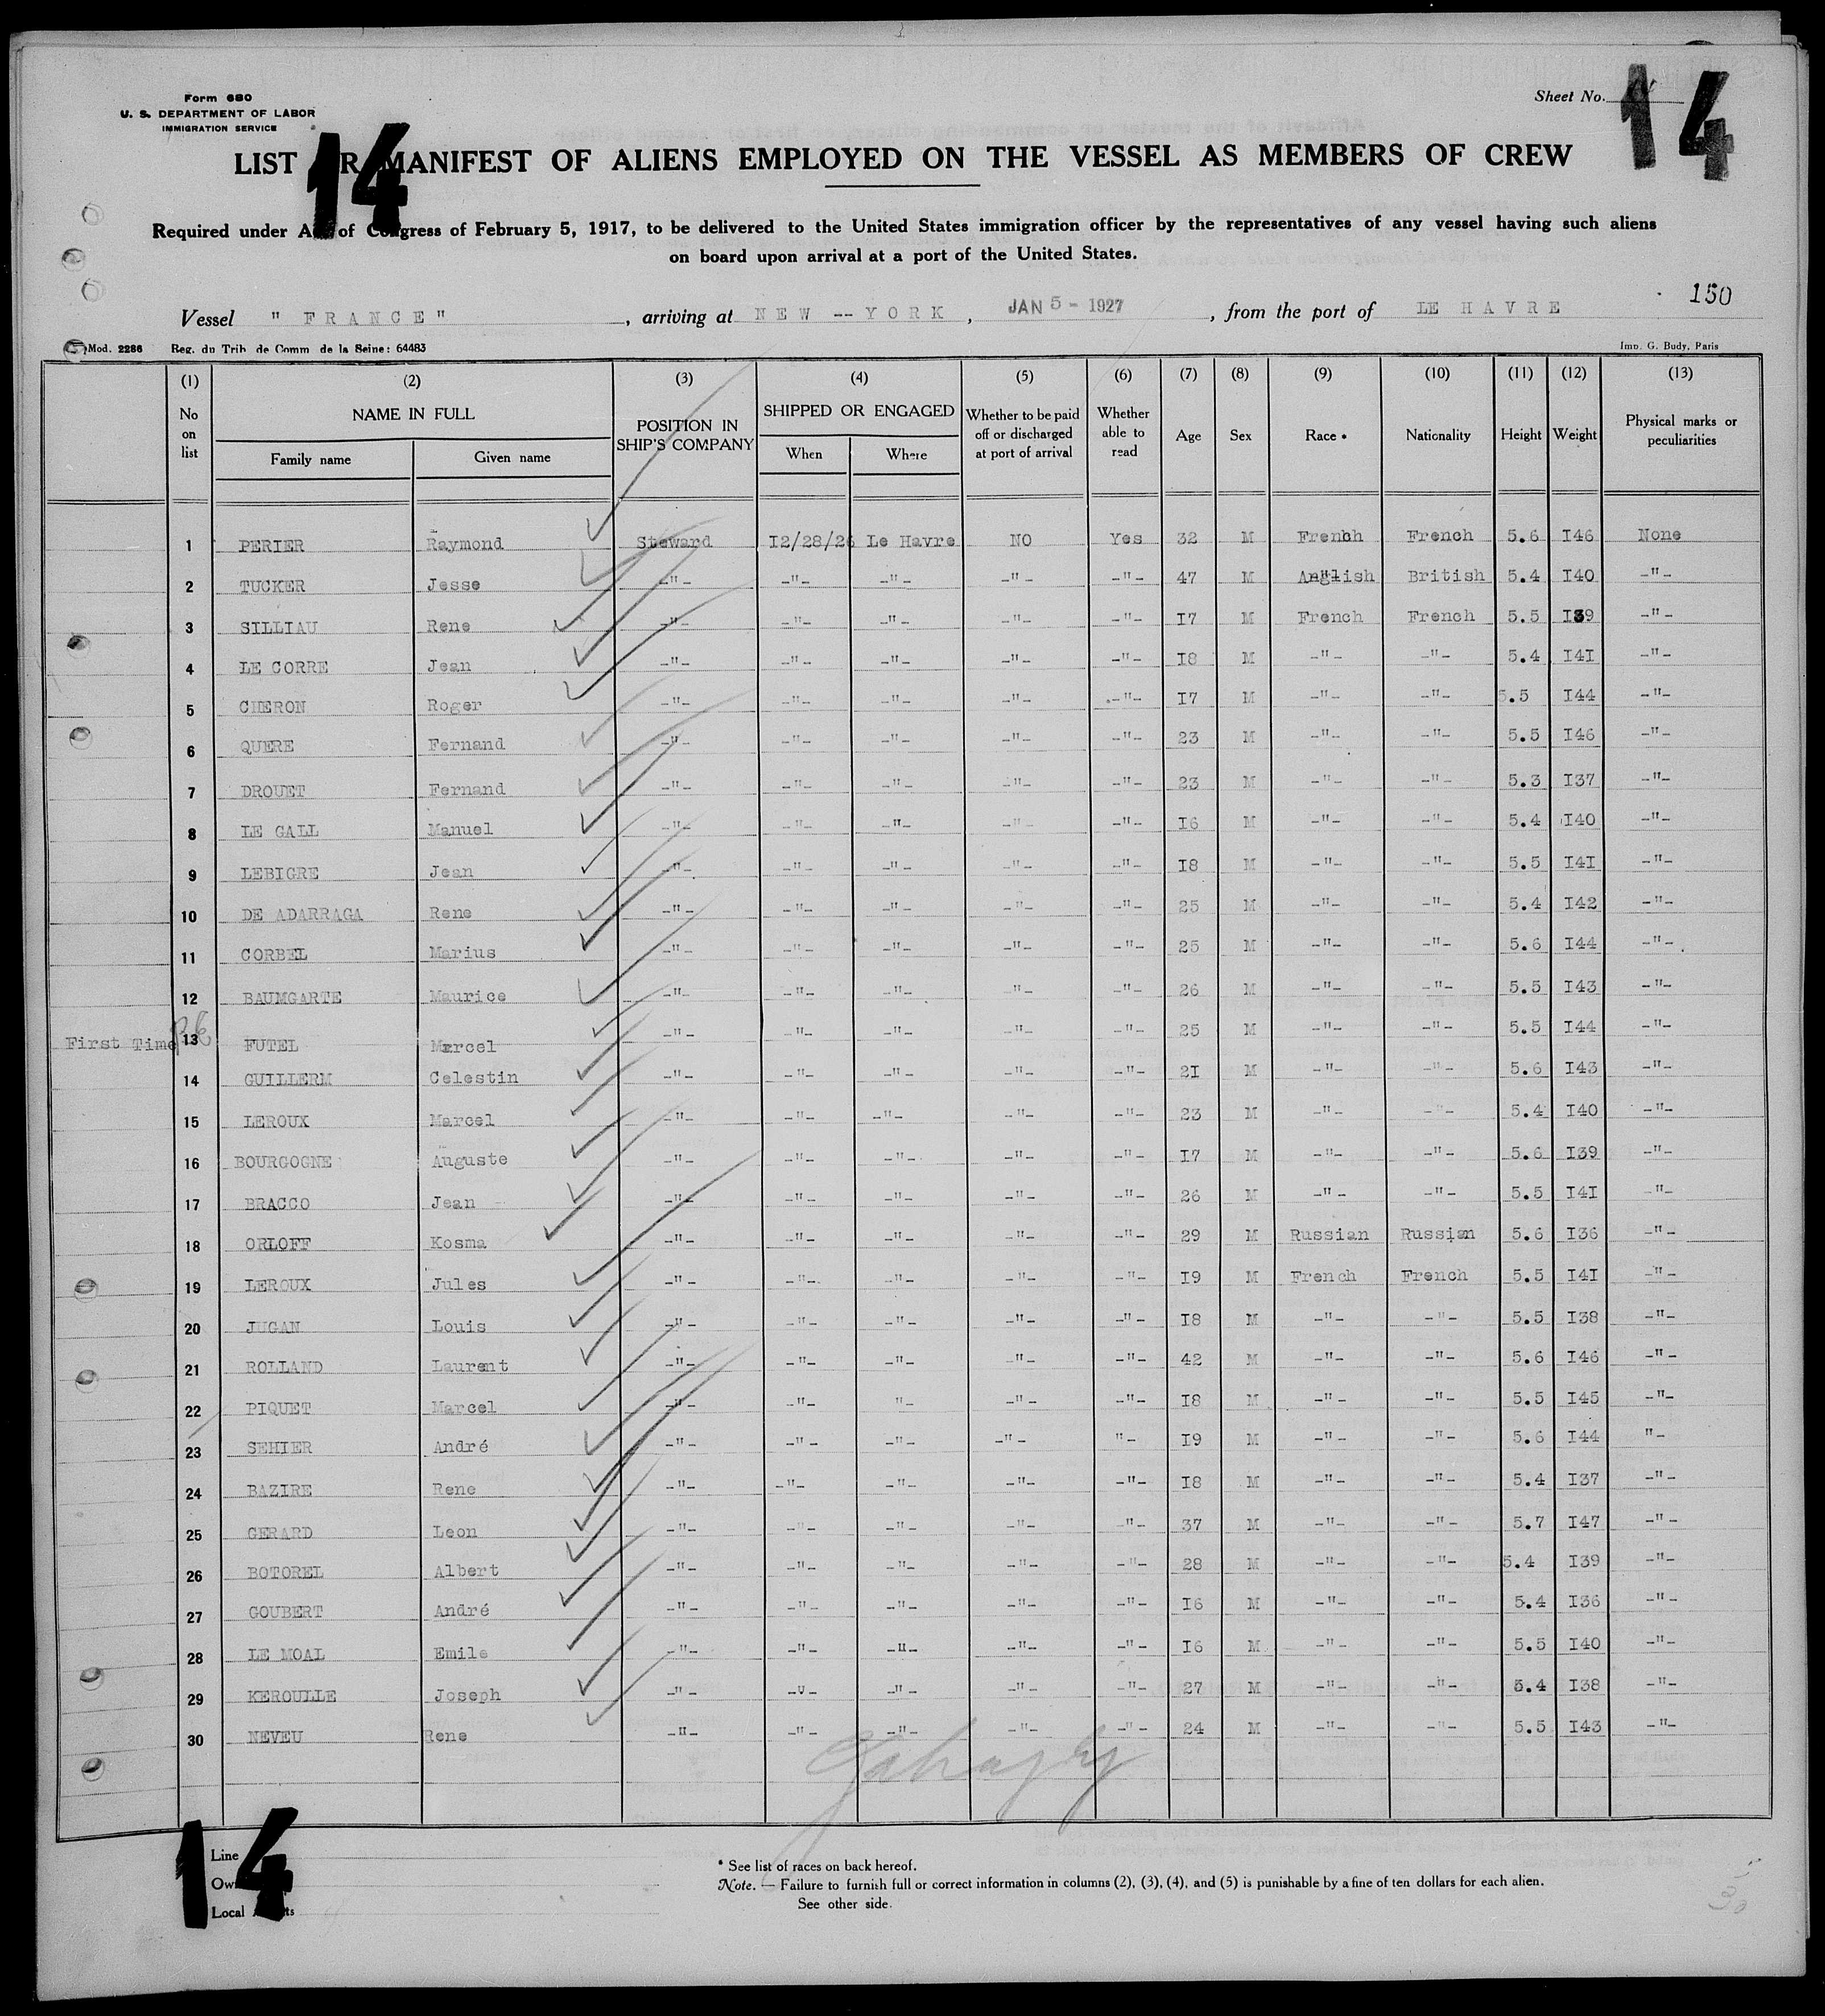 Form 680
U. S. DEPARTMENT OF LABOR
IMMIGRATION SERVICE
Sheet No. 14
14
LIST OR MANIFEST OF ALIENS EMPLOYED ON THE VESSEL AS MEMBERS OF CREW
14
Required under Act of Congress of February 5, 1917, to be delivered to the United States immigration officer by the representatives of any vessel having such aliens
on board upon arrival at a port of the United States.
150
Vessel " FRANCE " , arriving at NEW -- YORK , JAN 5 - 1927 , from the port of LE HAVRE
Mod. 2286 Reg. du Trib. de Comm. de la Seine: 64483 Imp. G. Budy, Paris
(1) (2) (3) (4) (5) (6) (7) (8) (9) (10) (11) (12) (13)
No on list NAME IN FULL Family name Given name POSITION IN SHIP'S COMPANY SHIPPED OR ENGAGED When Where Whether to be paid off or discharged at port of arrival Whether able to read Age Sex Race * Nationality Height Weight Physical marks or peculiarities
1 PERIER Raymond Steward 12/28/26 Le Havre NO Yes 32 M French French 5.6 146 None
2 TUCKER Jesse -"- -"- -"- -"- -"- 47 M Anglish British 5.4 140 -"-
3 SILLIAU Rene -"- -"- -"- -"- -"- 17 M French French 5.5 139 -"-
4 LE CORRE Jean -"- -"- -"- -"- -"- 18 M -"- -"- 5.4 141 -"-
5 CHERON Roger -"- -"- -"- -"- -"- 17 M -"- -"- 5.5 144 -"-
6 QUERE Fernand -"- -"- -"- -"- -"- 23 M -"- -"- 5.5 146 -"-
7 DROUET Fernand -"- -"- -"- -"- -"- 23 M -"- -"- 5.3 137 -"-
8 LE GALL Manuel -"- -"- -"- -"- -"- 16 M -"- -"- 5.4 140 -"-
9 LEBIGRE Jean -"- -"- -"- -"- -"- 18 M -"- -"- 5.5 141 -"-
10 DE ADARRAGA Rene -"- -"- -"- -"- -"- 25 M -"- -"- 5.4 142 -"-
11 CORBEL Marius -"- -"- -"- -"- -"- 25 M -"- -"- 5.6 144 -"-
12 BAUMGARTE Maurice -"- -"- -"- -"- -"- 26 M -"- -"- 5.5 143 -"-
First Time 13 FUTEL Marcel -"- -"- -"- -"- -"- 25 M -"- -"- 5.5 144 -"-
14 GUILLERM Celestin -"- -"- -"- -"- -"- 21 M -"- -"- 5.6 143 -"-
15 LEROUX Marcel -"- -"- -"- -"- -"- 23 M -"- -"- 5.4 140 -"-
16 BOURGOGNE Auguste -"- -"- -"- -"- -"- 17 M -"- -"- 5.6 139 -"-
17 BRACCO Jean -"- -"- -"- -"- -"- 26 M -"- -"- 5.5 141 -"-
18 ORLOFF Kosma -"- -"- -"- -"- -"- 29 M Russian Russian 5.6 136 -"-
19 LEROUX Jules -"- -"- -"- -"- -"- 19 M French French 5.5 141 -"-
20 JUGAN Louis -"- -"- -"- -"- -"- 18 M -"- -"- 5.5 138 -"-
21 ROLLAND Laurent -"- -"- -"- -"- -"- 42 M -"- -"- 5.6 146 -"-
22 PIQUET Marcel -"- -"- "- -"- -"- 18 M -"- -"- 5.5 145 -"-
23 SEHIER André -"- -"- -"- -"- "- 19 M -"- -"- 5.6 144 "-
24 BAZIRE Rene -"- -"- -"- -"- -"- 18 M -"- -"- 5.4 137 -"-
25 GERARD Leon -"- -"- -"- -"- -"- 37 M -"- -"- 5.7 147 -"-
26 BOTOREL Albert -"- -"- -"- -"- -"- 28 M -"- -"- 5.4 139 -"-
27 GOUBERT André -"- -"- -"- -"- -"- 16 M -"- -"- 5.4 136 -"-
28 LE MOAL Emile -"- -"- -"- -"- -"- 16 M -"- -"- 5.5 140 -"-
29 KEROULLE Joseph -"- -"- -"- -"- -"- 27 M -"- -"- 5.4 138 -"-
30 NEVEU Rene -"- -"- -"- -"- -"- 24 M -"- -"- 5.5 143 -"-
14
Line
* See list of races on back hereof.
Note. — Failure to furnish full or correct information in columns (2), (3), (4), and (5) is punishable by a fine of ten dollars for each alien.
See other side.
Local